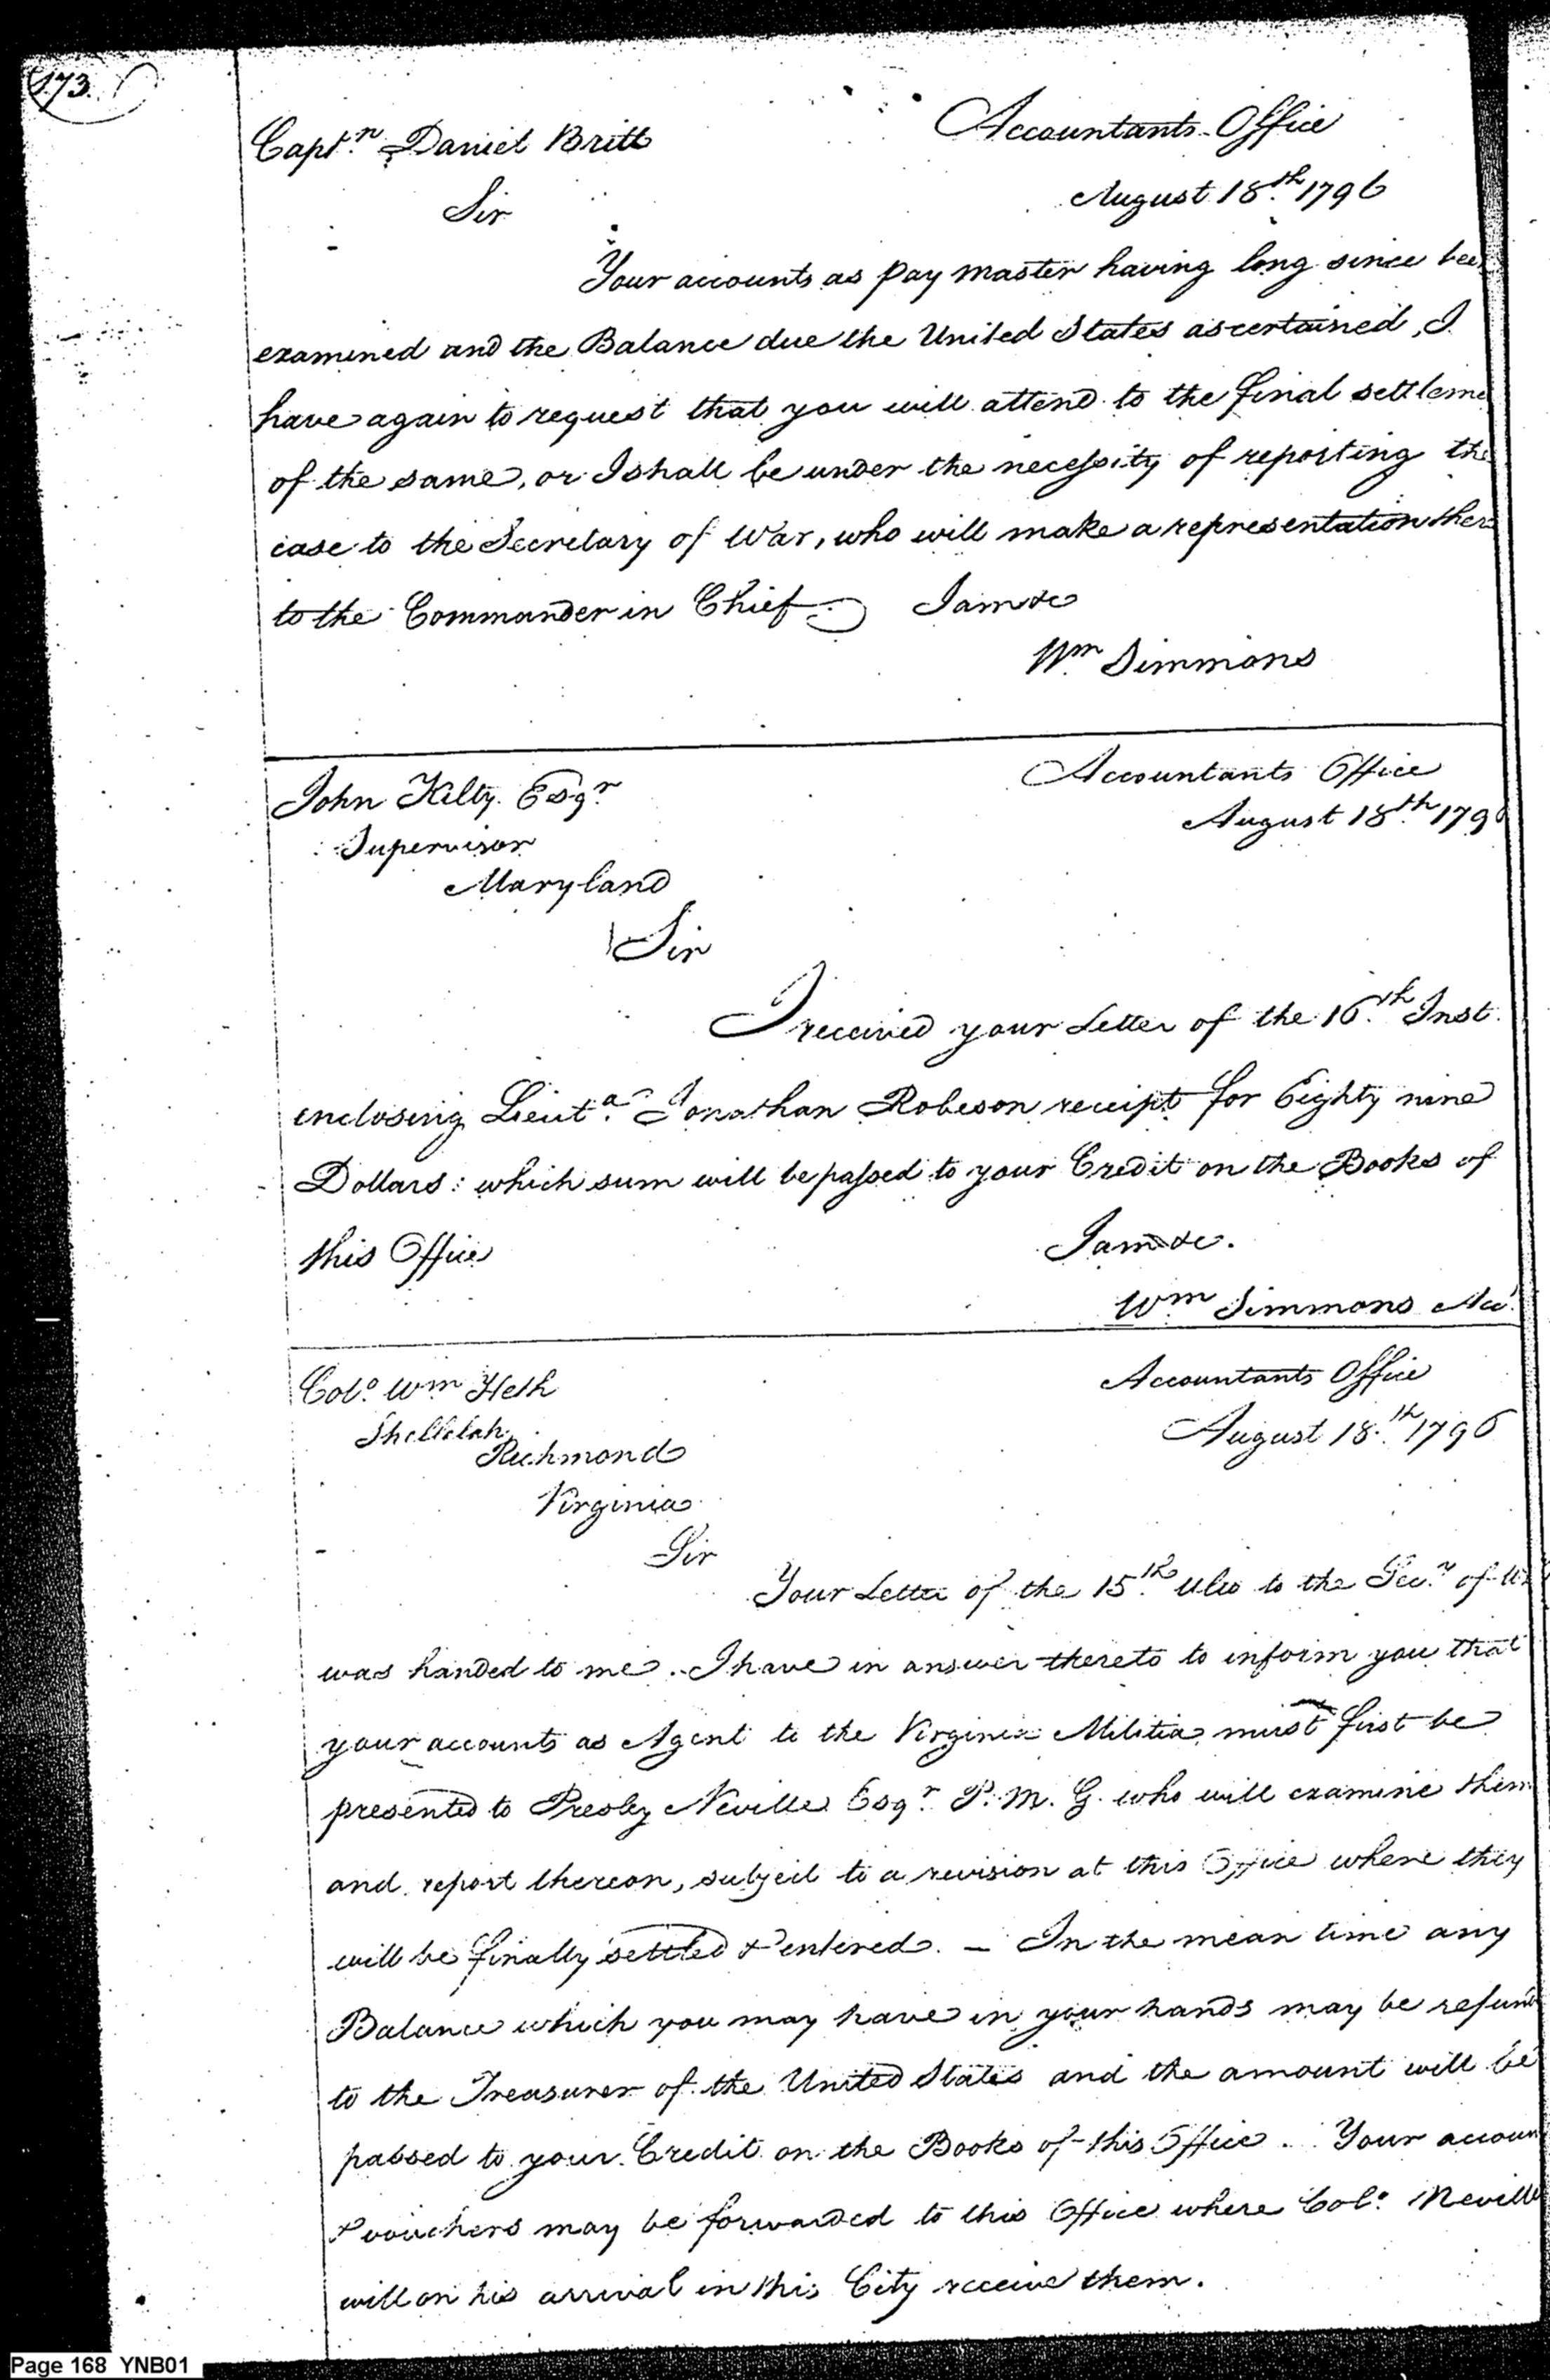 173.
Capt.n Daniel Britt
Accountants Office
August 18.th 1796
Sir
Your accounts as pay master having long since bee
examined and the Balance due the United States ascertained, I
have again to request that you will attend to the final settleme
of the same, or I shall be under the necessity of reporting the
case to the Secretary of War, who will make a representation ther
to the Commander in Chief. I am &c
Wm Simmons
John Kilty Esqr
Accountants Office
August 18.th 179
Supervisor
Maryland
Sir
I received your Letter of the 16.th Inst.
enclosing Lieut. Jonathan Robeson receipt for Eighty nine
Dollars: which sum will be passed to your Credit on the Books of
this Office
I am &c.
Wm Simmons Acc.t
Colo. Wm Heth
Accountants Office
August 18.th 1796
Richmond
Virginia
Sir
Your Letter of the 15.th Ulto to the Sec.y of W
was handed to me. I have in answer thereto to inform you that
your accounts as Agent to the Virginia Militia must first be
presented to Presley Neville Esqr. P. M. G. who will examine them
and report thereon, subject to a revision at this Office where they
will be finally settled & entered. — In the mean time any
Balance which you may have in your hands may be refund
to the Treasurer of the United States and the amount will be
passed to your Credit on the Books of this Office. Your accoun
& vouchers may be forwarded to this Office where Colo. Neville
will on his arrival in this City receive them.
Page 168 YNB01